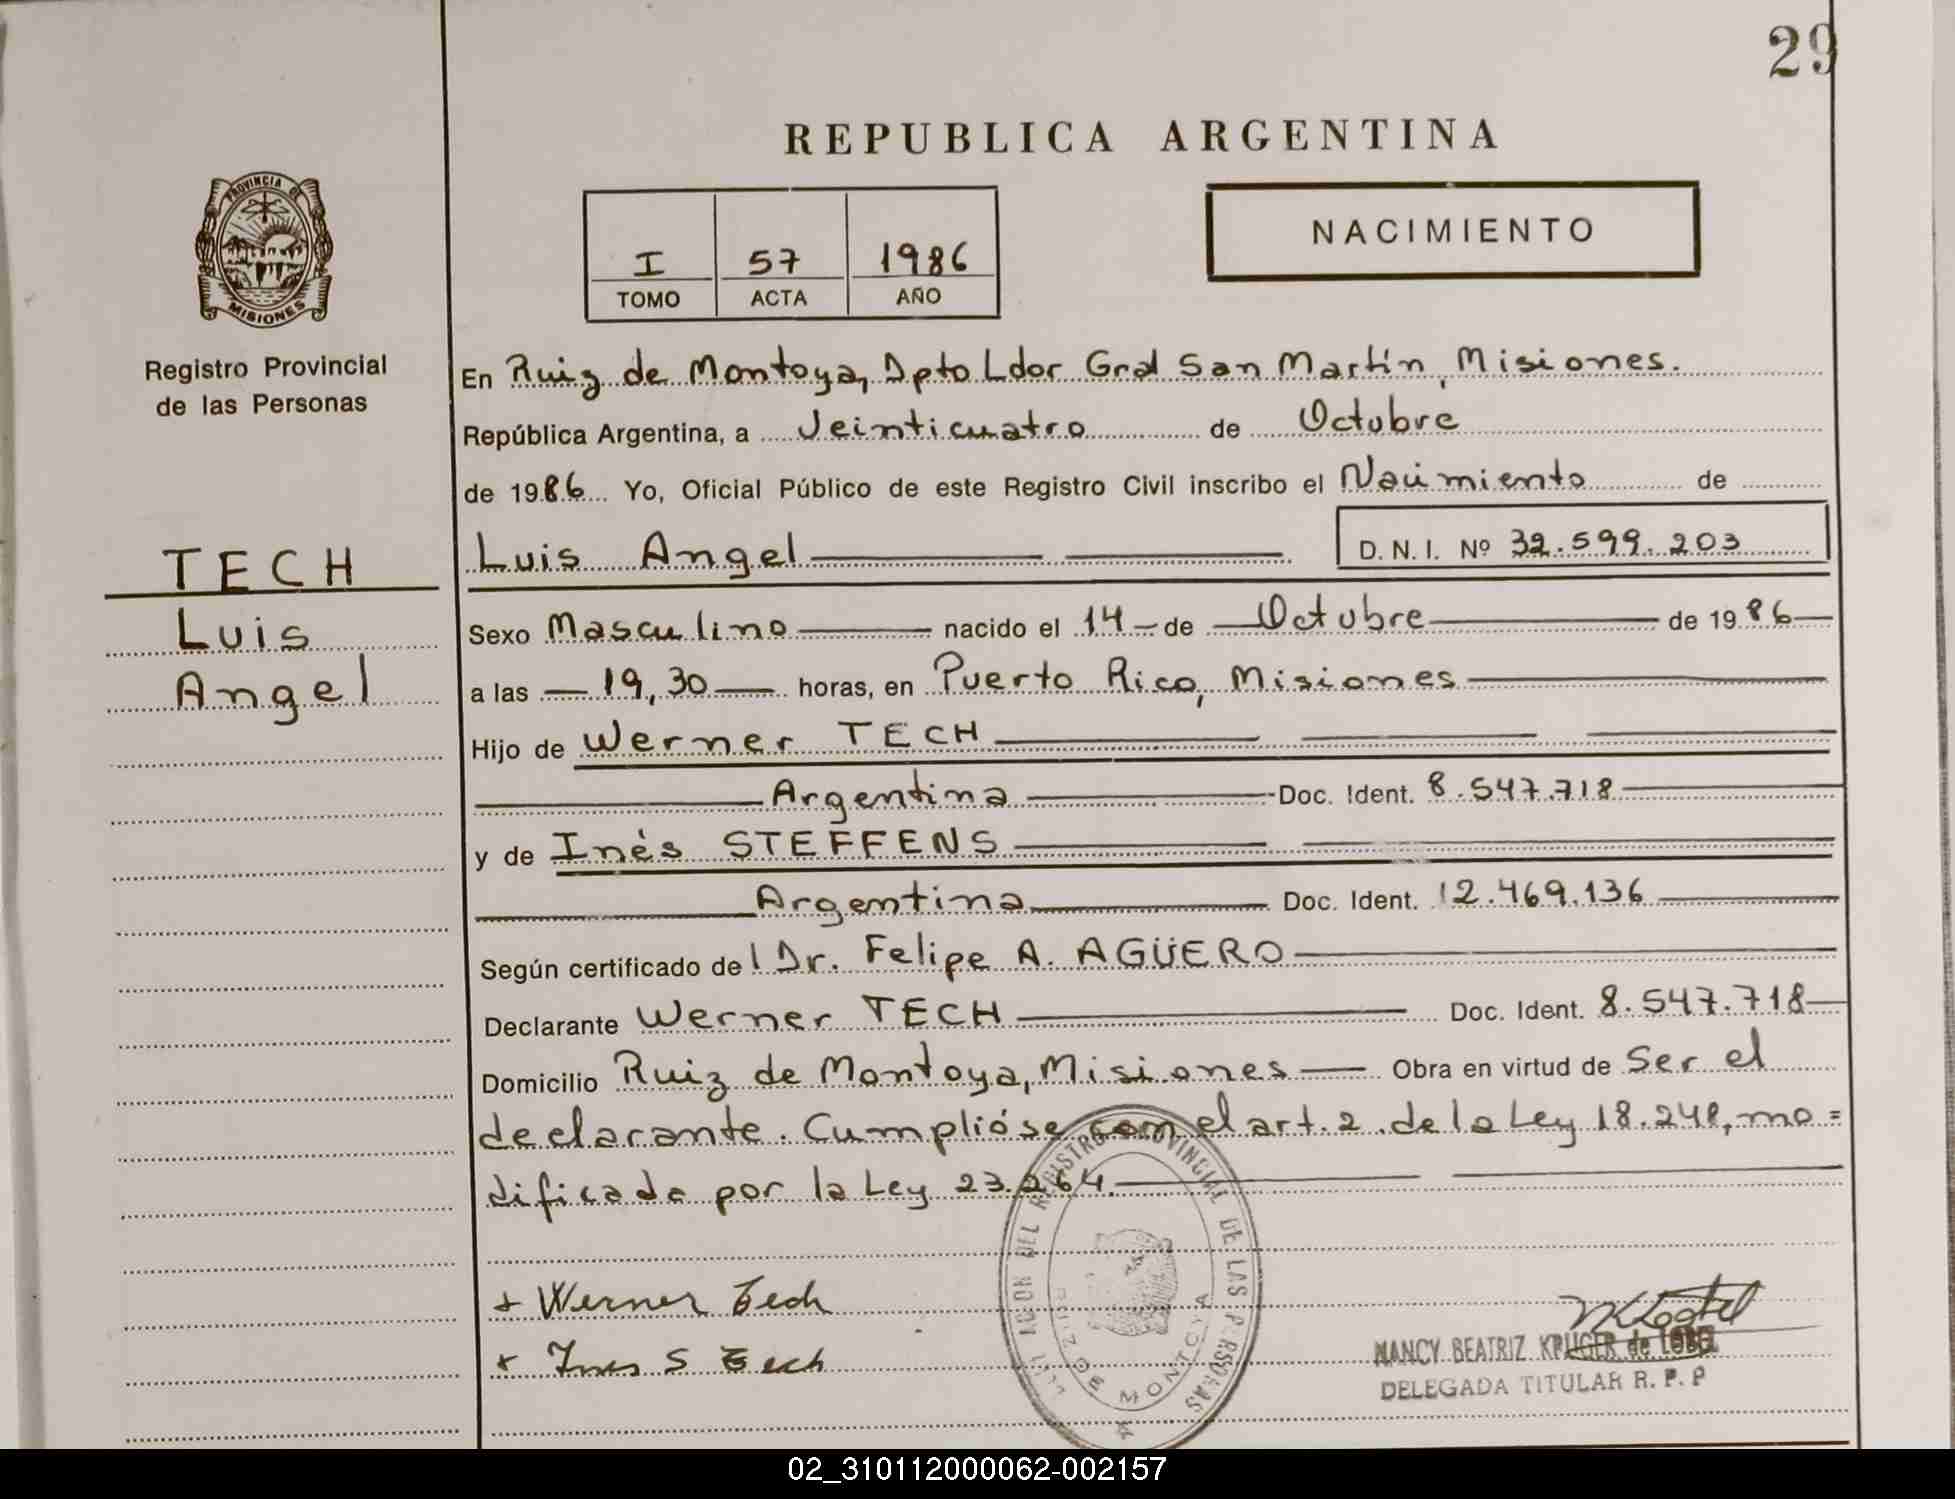 29
REPUBLICA ARGENTINA
PROVINCIA DE
MISIONES
I 57 1986
TOMO ACTA AÑO
NACIMIENTO
Registro Provincial
de las Personas
TECH
Luis
Angel
En Ruiz de Montoya, Dpto Ldor Gral San Martín, Misiones.
República Argentina, a Veinticuatro de Octubre
de 1986 Yo, Oficial Público de este Registro Civil inscribo el Nacimiento de
Luis Angel D.N.I. Nº 32.599.203
Sexo Masculino nacido el 14 de Octubre de 1986
a las 19,30 horas, en Puerto Rico, Misiones
Hijo de Werner TECH
Argentina Doc. Ident. 8.547.718
y de Inés STEFFENS
Argentina Doc. Ident. 12.469.136
Según certificado del Dr. Felipe A. AGÜERO
Declarante Werner TECH Doc. Ident. 8.547.718
Domicilio Ruiz de Montoya, Misiones Obra en virtud de Ser el
declarante. Cumplióse con el art. 2 de la Ley 18.248, mo=
dificada por la Ley 23.264.
+ Werner Tech
+ Ines S Tech
DEL REGISTRO PROVINCIAL DE LAS PERSONAS
RUIZ DE MONTOYA
NANCY BEATRIZ KRUGER de
DELEGADA TITULAR R. P. P
02_310112000062-002157